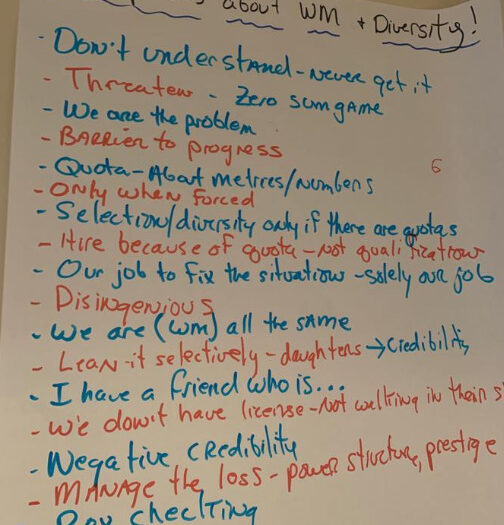 about WM + Diversity!
- Don't understand - never get it
- Threaten - Zero sum game
- We are the problem
- BARRIER to progress
- Quota - About metrics/numbers
6
- Only when forced
- Selection/diversity only if there are quotas
- Hire because of quota - not qualification
- Our job to fix the situation - solely our job
- Disingenious
- We are (WM) all the same
- Lean-it selectively - daughters → Credibility
- I have a friend who is...
- We don't have license - not walking in their s
- Negative CREDIBILITY
- MANAGE the loss - power structure, prestige